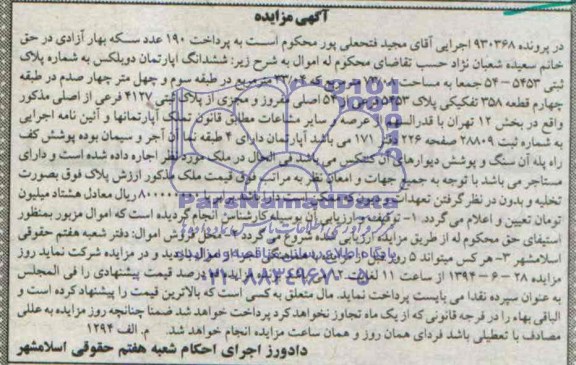 آگهی مزایده
در پرونده ۹۳۰۳۶۸ اجرایی آقای مجید فتحعلی پور محکوم است به پرداخت ۱۹۰ عدد سکه بهار آزادی در حق
خانم سعیده شعبان نژاد حسب تقاضای محکوم له اموال به شرح زیر: ششدانگ اپارتمان دوبلکس به شماره پلاک
ثبتی ۵۴۵۳ – ۵۴ جمعا به مساحت که ۳۳/۰۴ متر مربع در طبقه سوم و چهل متر چهار صدم در طبقه
چهارم قطعه ۳۵۸ تفکیکی پلاک ۵۴ اصلی مفروز و مجزی از پلاک ثبتی ۴۱۲۷ فرعی از اصلی مذکور
واقع در بخش ۱۲ تهران با قدرالسهم از عرصه و سایر مشاعات مطابق قانون تملک آپارتمانها و آئین نامه اجرایی
به شماره ثبت ۲۸۸۰۹ صفحه ۲۲۶ دفتر ۱۷۱ می باشد آپارتمان دارای ۴ طبقه نما آن آجر و سیمان بوده پوشش کف
راه پله آن سنگ و پوشش دیوارهای آن کنتکس می باشد فی الحال در ملک مورد نظر اجاره داده شده است و دارای
مستاجر می باشد با توجه به جمیع جهات و امعان نظر به مراتب فوق قیمت ملک مذکور ارزش پلاک فوق بصورت
تخلیه و بدون در نظر گرفتن تعهدات ریال معادل هشتاد میلیون
تومان تعیین و اعلام می گردد. ۱- توقیف و ارزیابی آن بوسیله کارشناس انجام گردیده است که اموال مزبور بمنظور
استیفای حق محکوم له از طریق مزایده ارزیابی شده شروع می گردد ۲- محل فروش اموال: دفتر شعبه هفتم حقوقی
اسلامشهر ۳- هر کس میتواند ۵ روز قبل از مزایده دیدید و در مزایده شرکت نماید روز
مزایده ۲۸ – ۶ – ۱۳۹۴ از ساعت ۱۱ لغایت ۱۲ درصد قیمت پیشنهادی را فی المجلس
به عنوان سپرده نقدا می بایست پرداخت نماید. مال متعلق به کسی است که بالاترین قیمت را پیشنهاد کرده است و
الباقی بهاء را در فرجه قانونی که از یک ماه تجاوز نخواهد کرد پرداخت خواهد شد ضمنا چنانچه روز مزایده به عللی
مصادف با تعطیلی باشد فردای همان روز و همان ساعت مزایده انجام خواهد شد. م. الف ۱۲۹۴
دادورز اجرای احکام شعبه هفتم حقوقی اسلامشهر
ParsNamadData
۰۲۱-۸۸۳۴۹۶۷۰-۵